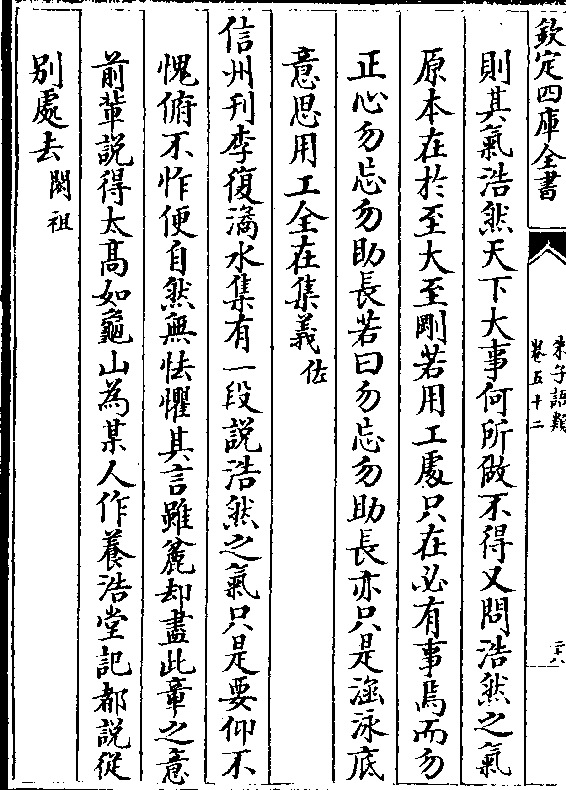 欽定四庫全書
朱子語類
卷五十二
二十八
則其氣浩然天下大事何所做不得又問浩然之氣
原本在於至大至剛若用工處只在必有事焉而勿
正心勿忘勿助長若曰勿忘勿助長亦只是涵泳底
意思用工全在集義佐
信州刊李復潏水集有一段說浩然之氣只是要仰不
愧俯不怍便自然無怯懼其言雖麄却盡此章之意
前輩說得太高如龜山為某人作養浩堂記都說從
別處去閎祖